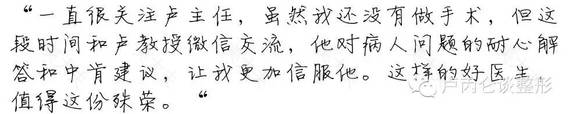 “一直很关注卢主任，虽然我还没有做手术，但这
段时间和卢教授微信交流，他对病人问题的耐心解
答和中肯建议，让我更加信服他。这样的好医生，
值得这份殊荣。“
卢丙仑谈整形